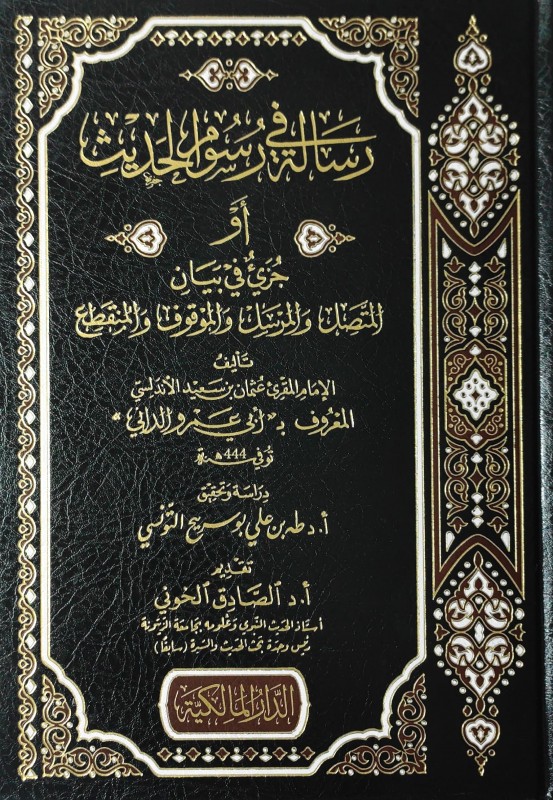 رسالة في رسوم الحديث
أو
جزئ في بيان
المتصل والمرسل والموقوف والمنقطع
تأليف
الإمام المقرئ عثمان بن سعيد الأندلسي
المعروف بـ «أبي عمرو الداني»
توفي 444هـ
دراسة وتحقيق
أ.د طه بن علي بوسريح التونسي
تقديم
أ.د الصادق الخوني
أستاذ الحديث النبوي وعلومه بجامعة الزيتونة
رئيس وحدة بحث الحديث والسيرة (سابقا)
الدار المالكية